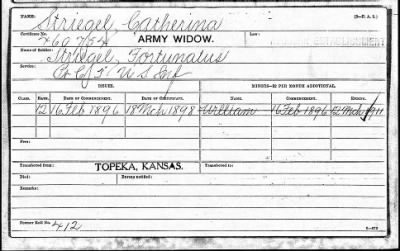 NAME: Striegel, Catherina
Certificate No. 469754 ARMY WIDOW.
Name of Soldier: Striegel, Fortunatus
Service: Co C, 5" U S Inf
ISSUES. MINORS—$2 PER MONTH ADDITIONAL.
CLASS. RATE. DATE OF COMMENCEMENT. DATE OF CERTIFICATE. NAME. DATE OF COMMENCEMENT. ENDING.
12 16 Feb 1896 18 Mch 1898 William 16 Feb 1896 12 Mch 1911
Fees:
Transferred from TOPEKA, KANSAS. Transferred to
Died: Bureau notified:
Remarks:
Former Roll No. 412